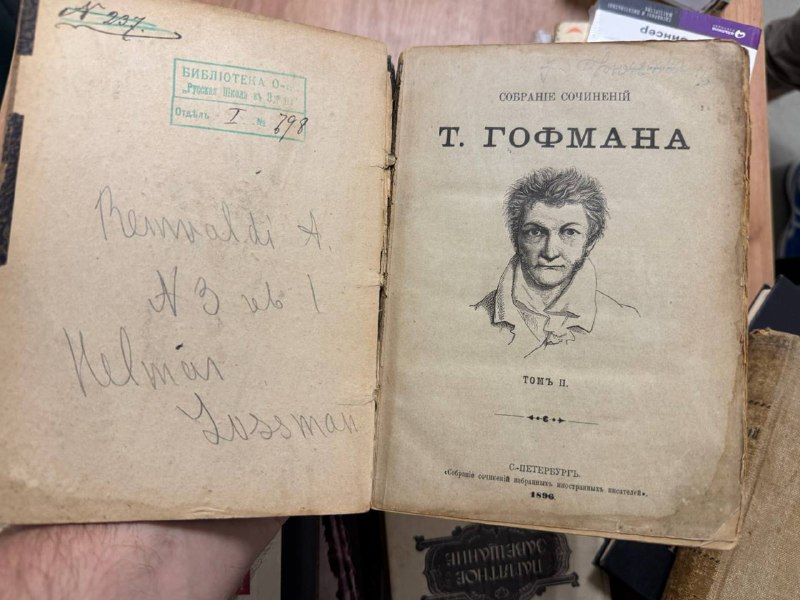 № 237.
БИБЛІОТЕКА О-
„Русская Школа въ
Отдѣлъ I № 798
Reinvaldi A.
N 3 1
Helmar
Lossman
СОБРАНІЕ СОЧИНЕНІЙ
Т. ГОФМАНА
ТОМЪ II.
С.-ПЕТЕРБУРГЪ.
«Собраніе сочиненій избранныхъ иностранныхъ писателей».
1896
ПАМЯТНОЕ
ЗАВЕЩАНИЕ